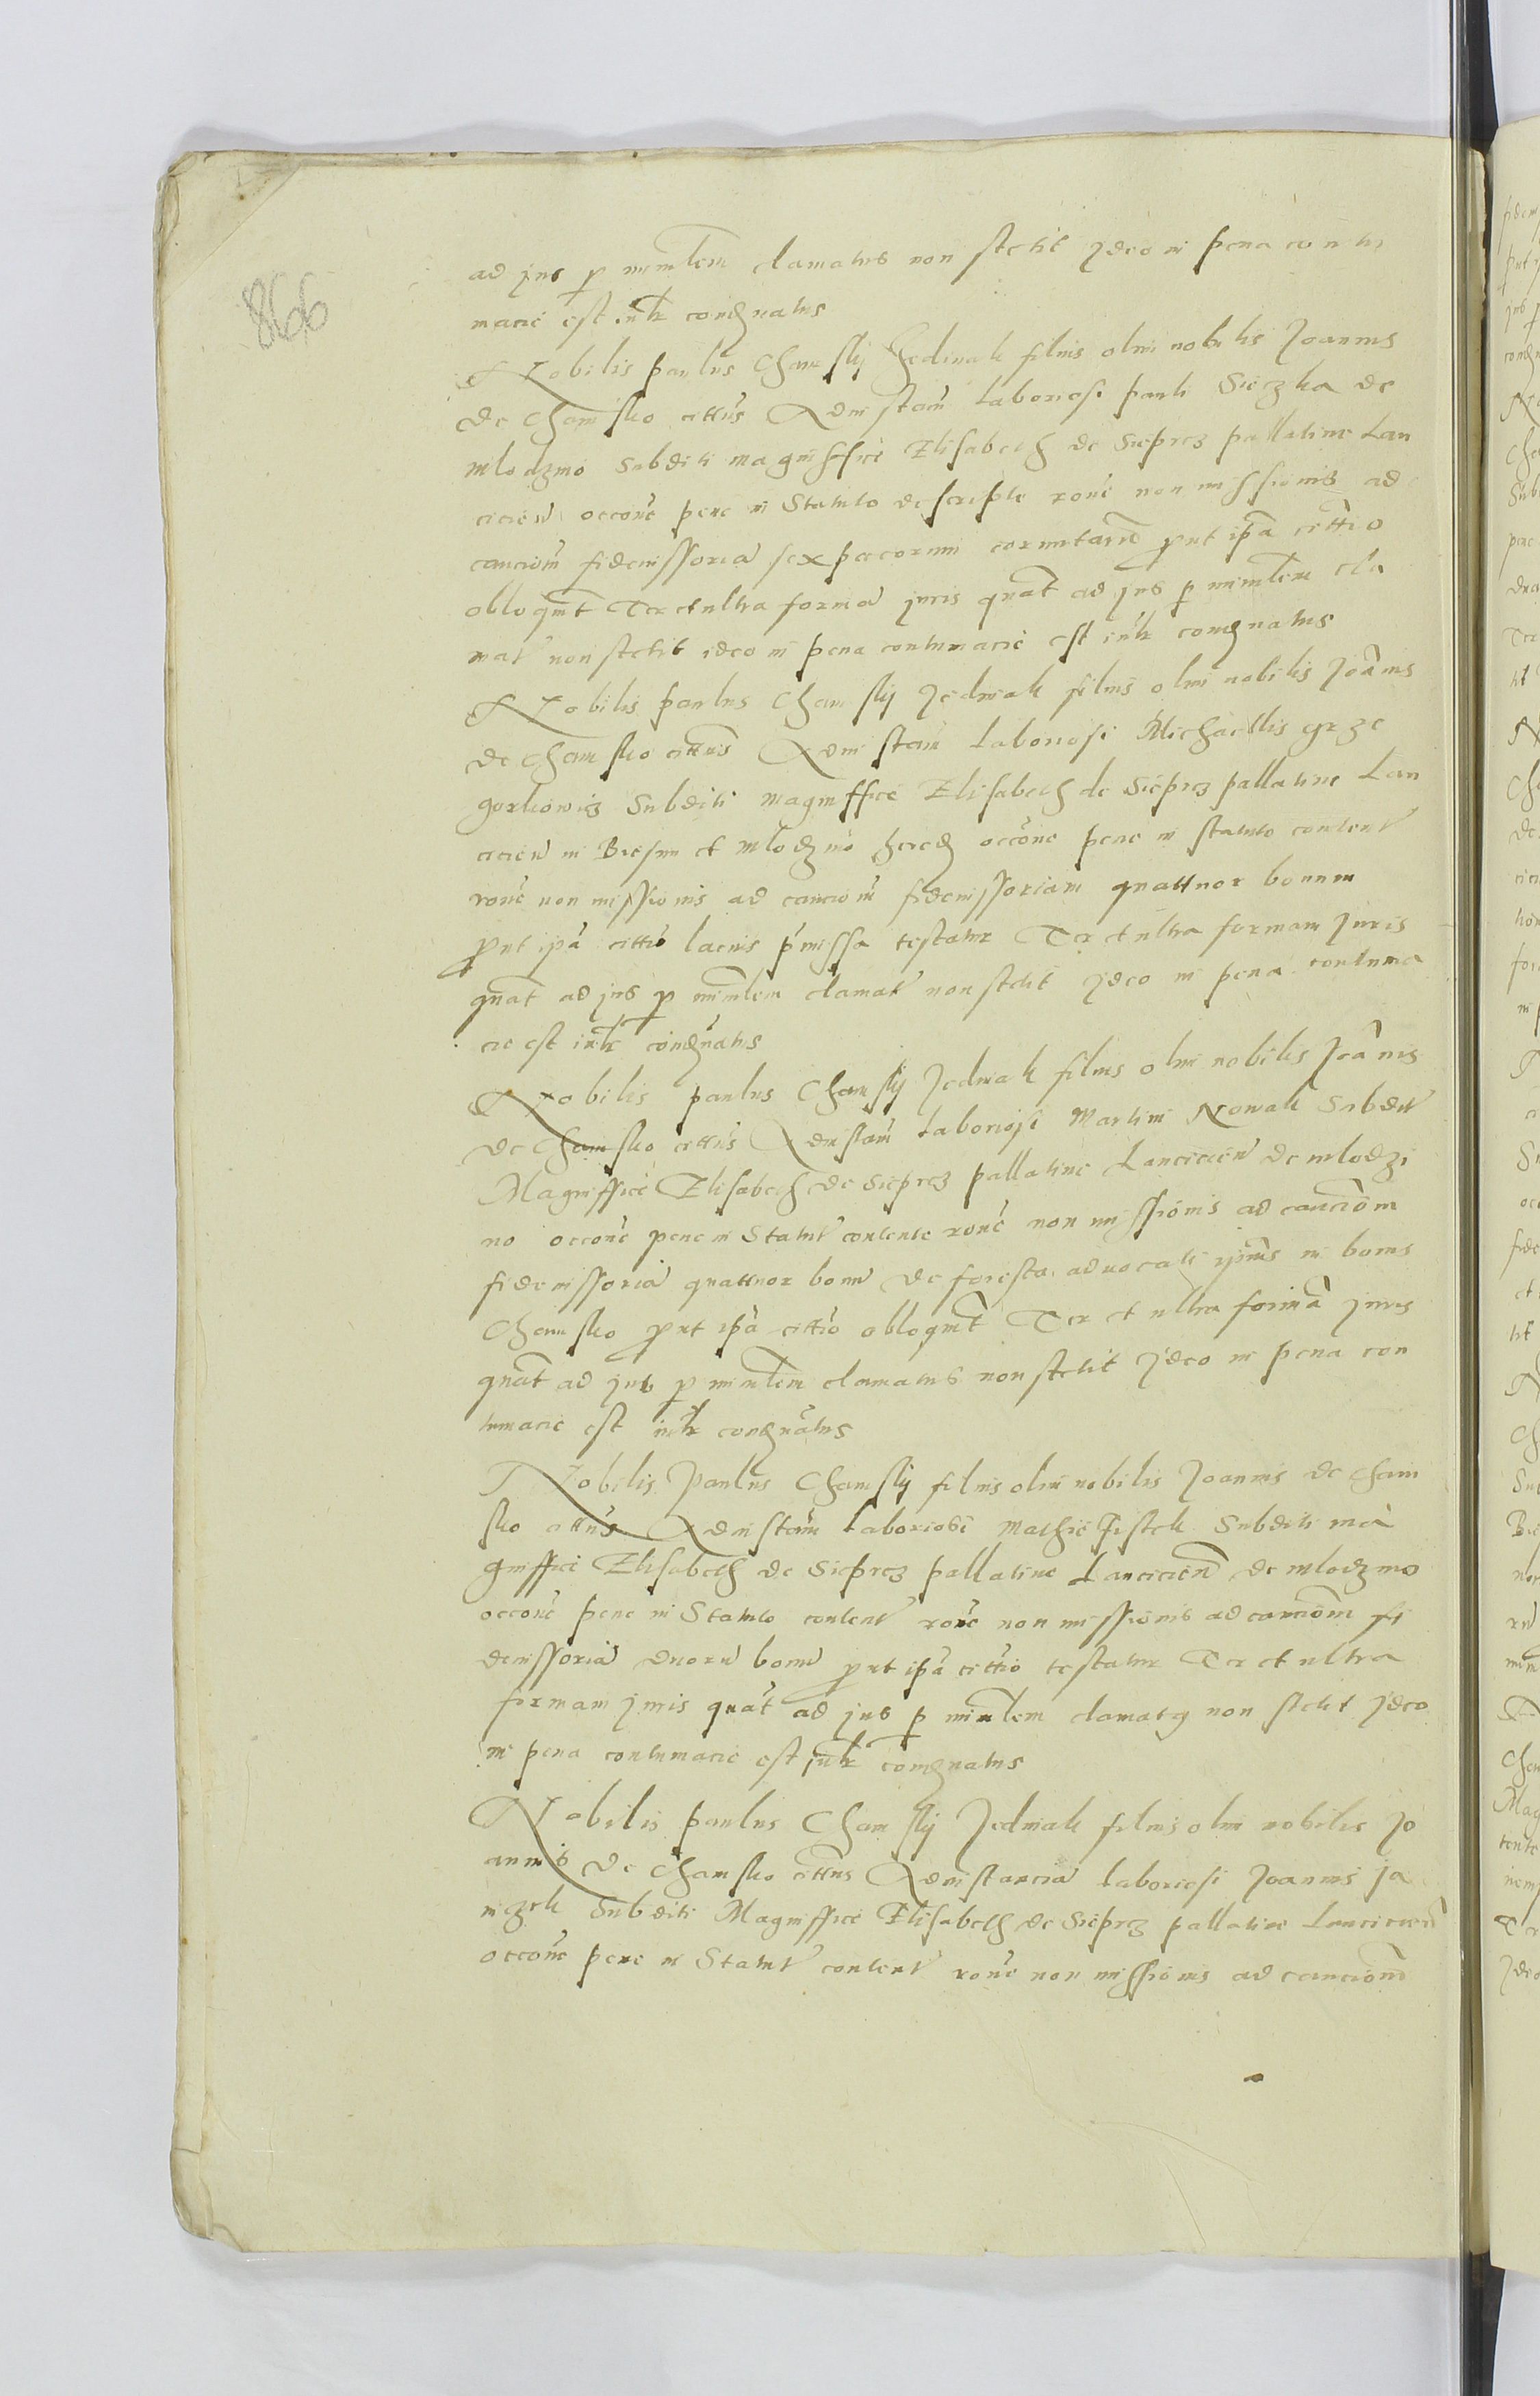 866
ad jus p minlem clamatus non stetit Ideo in pena contu
macie est intr condnatus
Nobilis paulus Chamsky Jedinak filius olim nobilis Joannis
de Chamsko cittus Ad instam laboriosi pauli Sieczka de
Mlodzino subditi magniffice Elisabeth de Sieprcz pallatine Lan
cicien occone pene in Statuto descripte rone non missionis ad
caucionem fideiussoria sex pecorum prut ipa cittio
obloqunt Ter et ultra forma juris quat ad jus p minlem cla
mat non stetit ideo in pena contumacie est intr condnatus
Nobilis paulus Chamsky Jedinak filius olim nobilis Joanis
de Chamsko cittus Ad instam laboriosi Michaellis grze
gorkowicz Subditi magniffice Elisabeth de Sieprcz pallatine Lan
cicien in Biesun et Mlodzino hered occone pene in statuto content
rone non missionis ad caucionem fideiussoriam quattuor bouum
prut ipa cittio lacius pmissa testatur Ter et ultra formam juris
quat ad jus p minlem clamat non stetit Ideo in pena contuma
cie est intr condnatus
Nobilis paulus Chamsky Jedinak filius olim nobilis Joanis
de Chamsko cittus Ad instam laboriosi Martini Nowak Subdit
Magniffice Elisabeth de Sieprcz pallatine Lancicien de Mlodzi
no occone pene in Statut contente rone non missionis ad caucionem
fideiussoria quattuor boum de foresta aduocati ipius in bonis
Chamsko prut ipa cittio obloqunt Ter et ultra forma juris
quat ad jus p minlem clamatus non stetit Ideo in pena con
tumacie est intr condnatus
Nobilis Paulus Chamsky filius olim nobilis Joannis de Cham
sko cittus Ad instam laboriosi Mathie Subditi ma
gniffice Elisabeth de Sieprcz pallatine Lancicien de Mlodzino
occone pene in Statuto content rone non missionis ad caucionem fi
deiussoria duoru boum prut ipa cittio testatur Ter et ultra
formam juris quat ad jus p minlem clamatq non stetit Ideo
in pena contumacie est intr condnatus
Nobilis paulus Chamsky Jedinak filius olim nobilis Jo
annis de Chamsko cittus Ad instancia laboriosi Joannis ja
niczek Subditi Magniffice Elisabeth de Sieprcz pallatine Lancicien
occone pene in Statut content rone non missionis ad caucionem